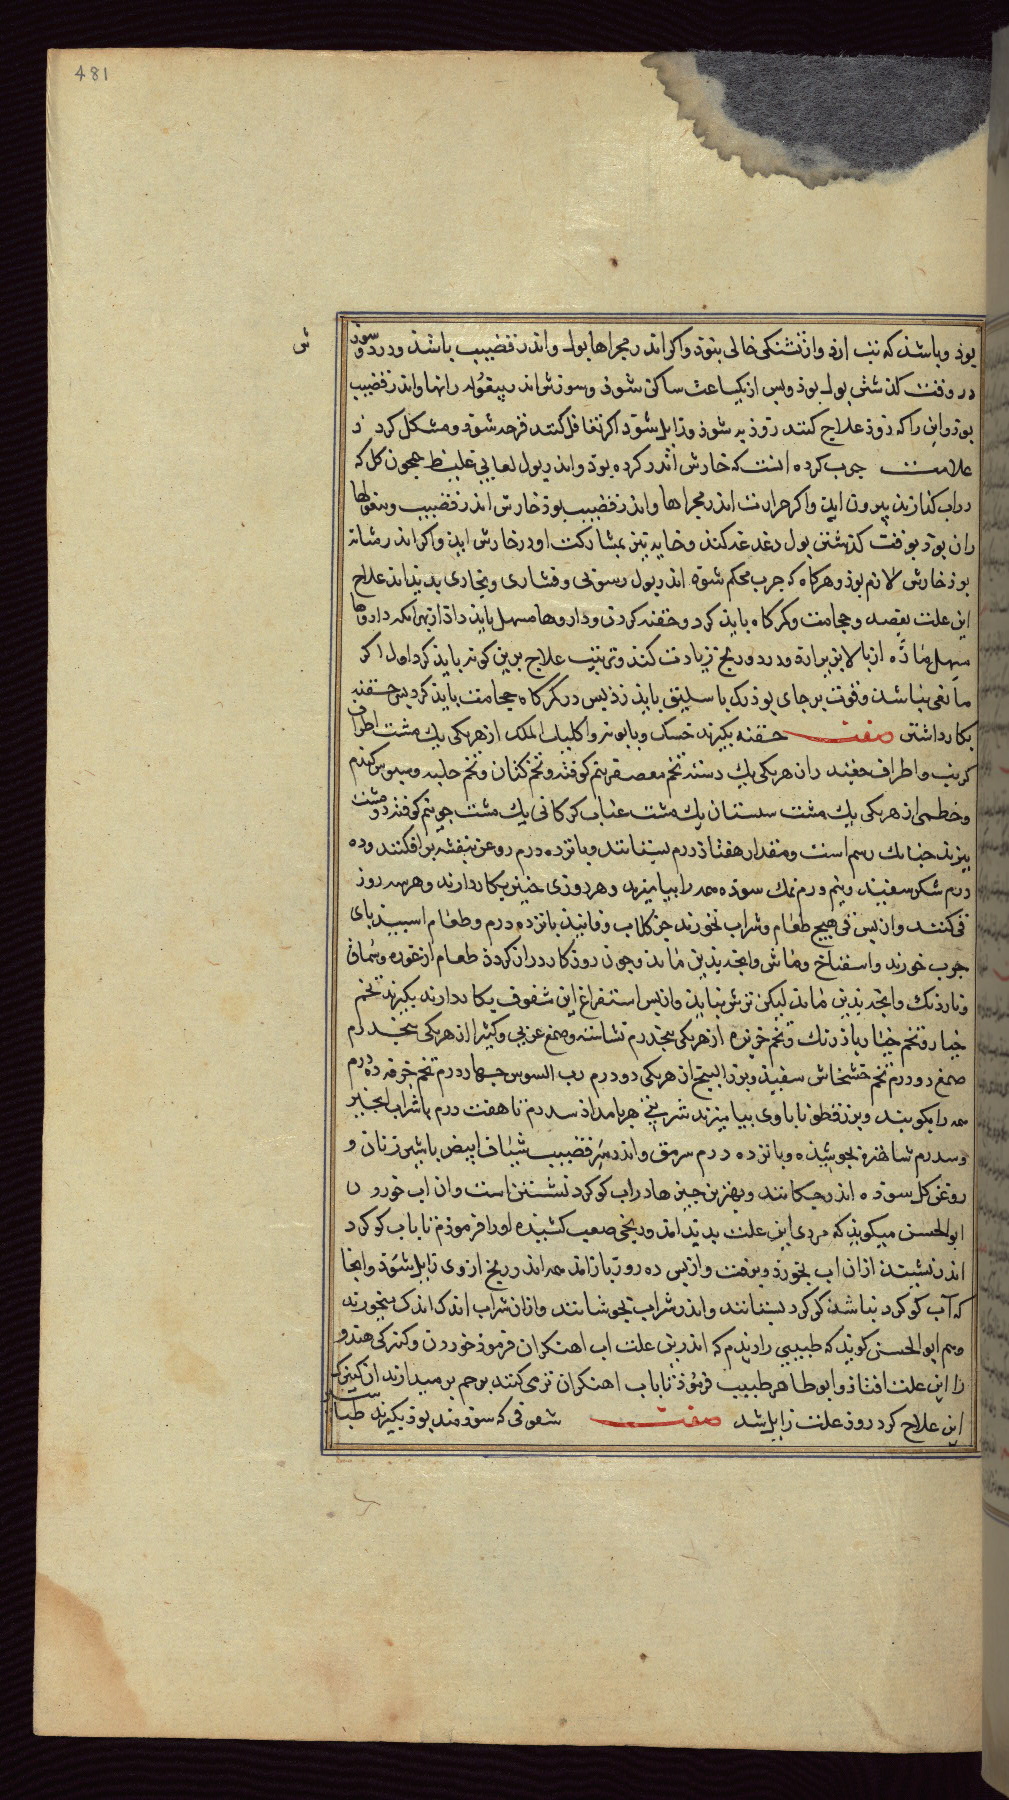 481
بوذ وباشذ که تب ارد واز تشنکی خالی نبوذ واکر اندر مجراها بول واندر قضیب باشذ ودرد وسوز
ش
در وقت کذشتن بول بوذ وپس از یکساعت ساکن شوذ وسوزش اندر بیغوله رانها واندر قضیب
بوذ واین را که زوذ علاج کنند زوذ به شوذ وزایل شوذ اکر تغافل کنند قرحه شوذ ومشکل کردد
علامت جرب کرده انست که خارش اندر کرده بوذ واندر بول لعابی غلیظ همچون کل که
در اب کذازند بیرون اید واکر حرارت اندر مجراها واندر قضیب بوذ خارش اندر قضیب وبیغولها
ران بوذ بوقت کذشتن بول دغدغه کنذ وخایه نیز بمشارکت او در خارش اید واکر اندر مثانه
بوذ خارش لازم بوذ وهرکاه که جرب محکم شوذ اندر بول رسوبی وفشاری ونخاری بدید اند علاج
این علت بفصد وحجامت وکمرکاه باید کرد وحقنه کردن وداروها مسهل باید داد از بهر انکه داروها
مسهل ماده از بالا بزیر ارد ودرد ورنج زیادت کند وترتیب علاج برین کونه باید کرد اول اکر
مانعی نباشد وقوت بر جای بوذ رک باسلیق باید زد پس در کمرکاه حجامت باید کرد پس حقنه
بکار داشتن صفت حقنه بکیرند خسک وبابونه واکلیل الملک از هریکی یک مشت اطراف
کرنب واطراف چغندر ان هریکی یک دسته تخم معصفر نیم کوفته وتخم کتان وتخم حلبه وسبوس کندم
وخطمی از هریکی یک مشت سبستان یک مشت عناب کرکانی یک مشت جو نیم کوفته دو مشت
بپزند چنانک رسم است ومقدار هفتاد درم بستانند وپانزده درم روغن بنفشه بر افکنند وده
درم شکر سفید ونیم درم نمک سوده همه را بیامیزند وهر روزی چنین بکار دارند وهر سه روز
قی کنند واز پس قی هیچ طعام وشراب نخورند جز کلاب وفانیذ پانزده درم وطعام اسپیذبای
چرب خورند واسفناخ وماش وانچه بذین ماند وچون روزکار دراز کردد طعام از غوره وسماق
ونارذنک وانچه بذین ماند لیکن ترش نباید واز پس استفراغ این سفوف بکار دارند بکیرند تخم
خیار وتخم خیار باذرنک وتخم خربزه از هریکی پنج درم نشاسته وصمغ عربی وکثیرا از هریکی پنج درم
صمغ دو درم تخم خشخاش سفید وبزر البنج از هریکی دو درم رب السوس چهار درم تخم خرفه ده درم
همه را بکوبند وبزرقطونا باوی بیامیزند شربتی هر بامداد سه درم تا هفت درم باشراب انجبیر
وسه درم شاهتره بجوشیذه وپانزده درم سرمق واندر سر قضیب شیاف ابیض باشیر زنان و
روغن کل سوده اندر چکانند وبهترین چیزها در اب کوکرد نشستن است وان اب خوردن
ابو الحسن میکویذ که مردی این علت بدید امد ورنجی صعب کشیده اورا فرموذم تا باب کوکرد
اندر نشیند ازان اب بخورد وبرفت واز پس ده روز باز امد همه اندر رنج ازوی زایل شوذ وانجا
که اب کوکرد نباشد کوکرد بستانند واندر شراب بجوشانند وازان شراب اندک اندک میخورند
وهم ابو الحسن کوید که طبیبی را دیدم که اندرین علت اب اهنکران فرموذ خوردن وکنیزکی هندو
را این علت افتاذ وابو طاهر طبیب فرموذ تا باب اهنکران تر می کنند برحم بر میدارند ان کنیزک
این علاج کرد روز علت زایل شد صفت سفوفی که سوذمند بوذ بکیرند طباشیر